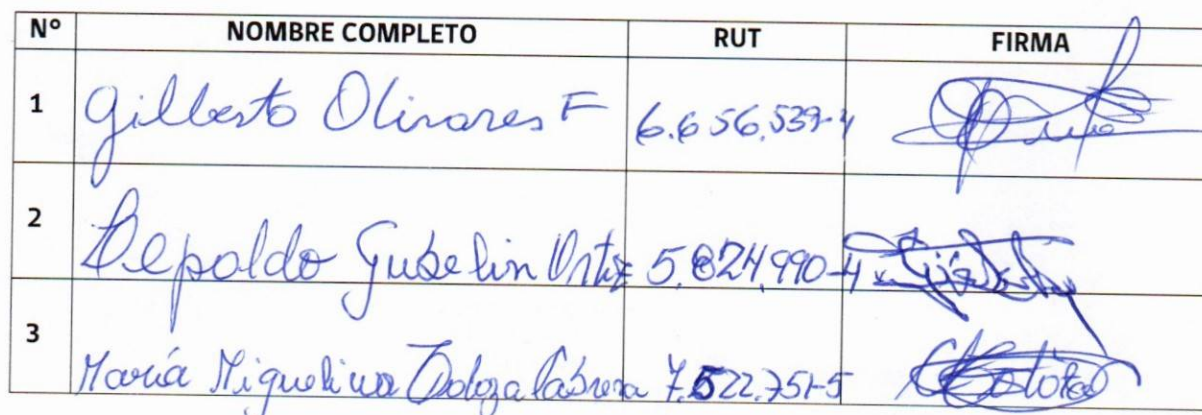 N° NOMBRE COMPLETO RUT FIRMA
1 Gilberto Olivares F 6.656.539-4
2 Gubelin Ortiz 5.824.990-4
3 María Miguelina Toloza Cabrera 7.522.751-5